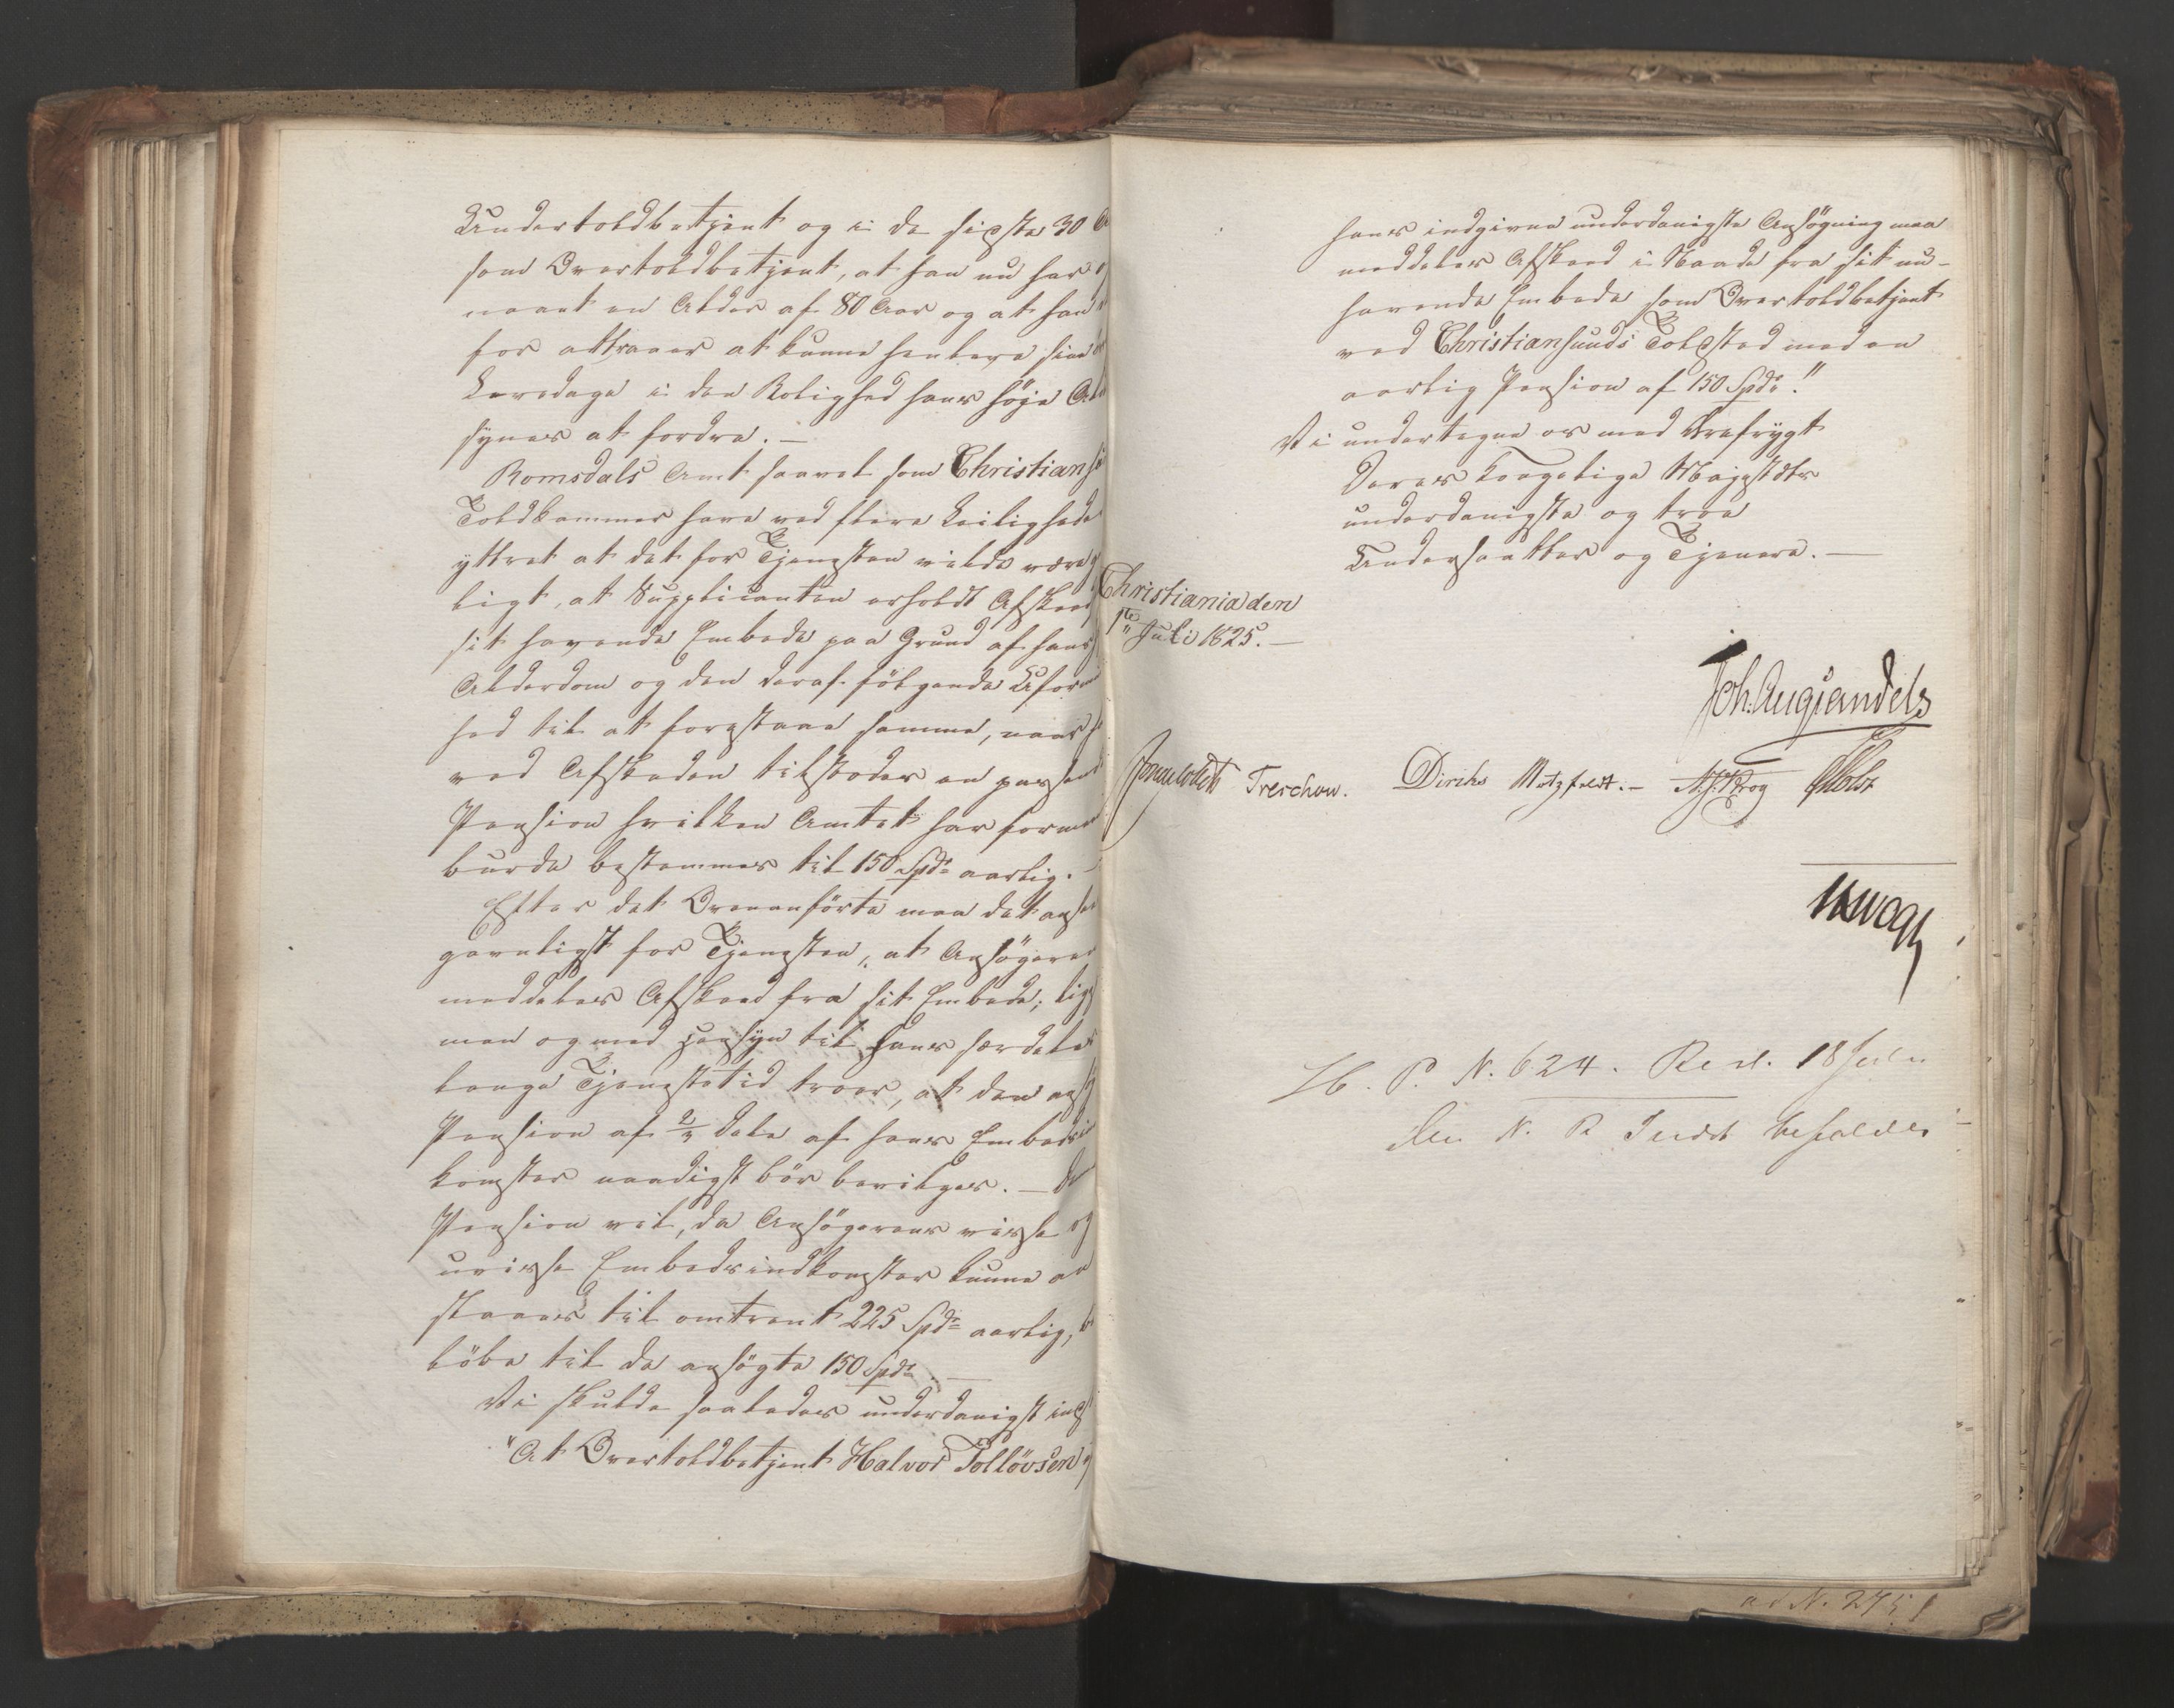 Undertoldbetjent og i de sidste 30 A
som Overtoldbetjent, at han nu har o
naaet en Alder af 80 Aar og at han
for attraaer at kunne henleve sine
Levedage i den Rolighed hans høje Al
synes at fordre. —
Romsdals Amt saavel som Christianss
Toldkammer have ved flere Leilighede
yttret at det for Tjenesten vilde være g
ligt, at Supplicanten erholdt Afskeed
sit havende Embede paa Grund af hans
Alderdom og den deraf følgende Uform
hed til at forestaae samme, naar h
ved Afskeden tilstodes en passend
Pension hvilken Amtet har formeent
burde bestemmes til 150 Spd: aarlig. –
Efter det Ovenanførte maa det anse
gavnligst for Tjenesten, at Ansøgeren
meddeles Afskeed fra sit Embede; lig
man og med Hensyn til hans særdeles
lange Tjenestetid troer, at den ansø
Pension af 2/3 Dele af hans Embedsin
komster naadigst bør bevilges. — Den
Pension vil, da Ansøgerens visse og
uvisse Embedsindkomster kunne an
slaaes til omtrent 225 Spd: aarlig, be
løbe til de ansøgte 150 Spd: —
Vi skulde saaledes underdanigst inds
"At Overtoldbetjent Halvor Tolløvsen
hans indgivne underdanigste Ansøgning maa
meddeles Afskeed i Naade fra sit nu-
havende Embede som Overtoldbetjent
ved Christiansunds Toldsted med en
aarlig Pension af 150 Spd:"
Vi undertegne os med Ærefrygt
Deres Kongelige Majestæts
underdanigste og troe
Undersaatter og Tjenere. —
Christiania den
1ste Juli 1825. —
Joh. Aug Sandels
Sommerhielm Treschow. Diriks Motzfeldt. – A. J. Krog Holst
H. P. N. 624. Resl. 18 Julii
den N. R. Indst bifaldes
ad N. 2751